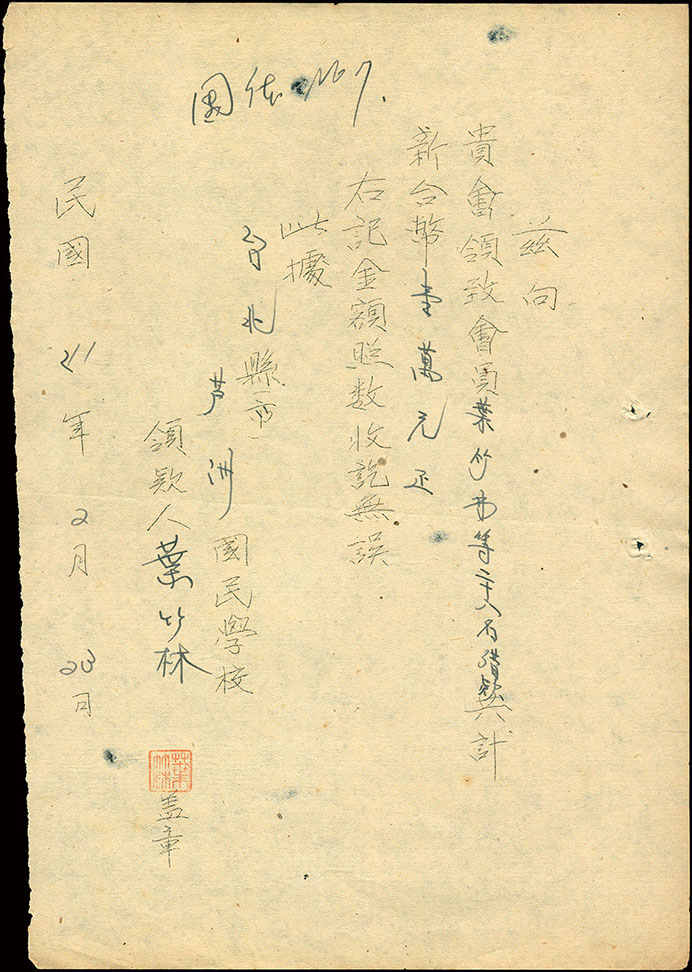 茲向
貴會領致會員葉竹林等二十八名借欵共計
新台幣壹萬元正
右記金額照数收訖無誤
此據
台北縣市
芦洲國民學校
領欵人葉竹林
葉竹林
盖章
民國41年2月23日